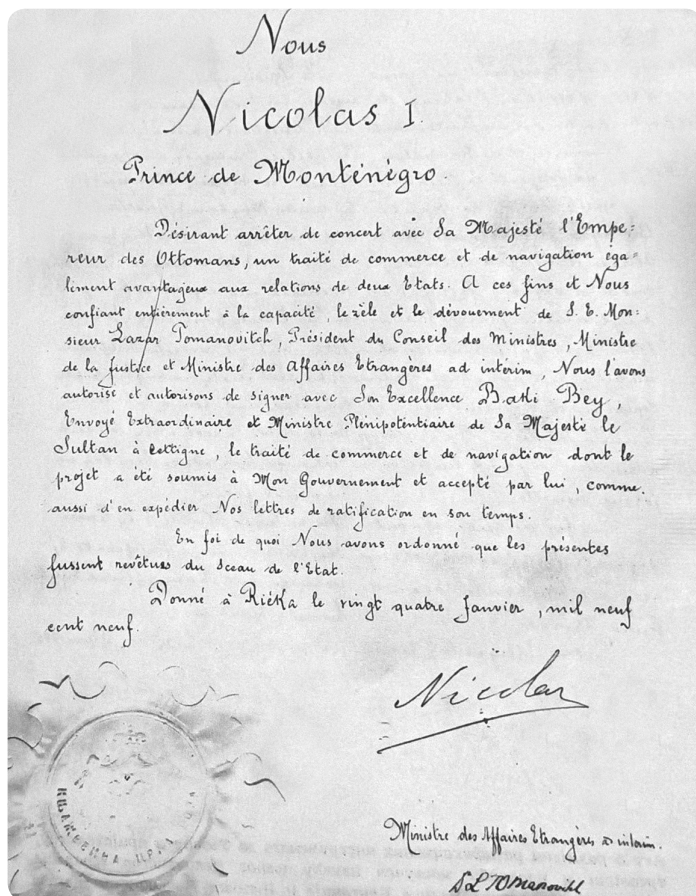 Nous
Nicolas I.
Prince de Monténégro.
Désirant arrêter de concert avec Sa Majesté l'Empe-
reur des Ottomans, un traité de commerce et de navigation éga-
lement avantageux aux relations de deux Etats. A ces fins et Nous
confiant entièrement à la capacité, le zèle et le dévouement de S. E. Mon-
sieur Lazar Tomanovitch, Président du Conseil des Ministres, Ministre
de la Justice et Ministre des Affaires Etrangères ad intérim, Nous l'avons
autorisé et autorisons de signer avec Son Excellence Baki Bey,
Envoyé Extraordinaire et Ministre Plénipotentiaire de Sa Majesté le
Sultan à Cettigne, le traité de commerce et de navigation dont le
projet a été soumis à Mon Gouvernement et accepté par lui, comme
aussi d'en expédier Nos lettres de ratification en son temps.
En foi de quoi Nous avons ordonné que les présentes
fussent revêtues du Sceau de l'Etat.
Donné à Riéka le vingt quatre Janvier, mil neuf
cent neuf.
Nicolas
Ministre des Affaires Etrangères ad interim.